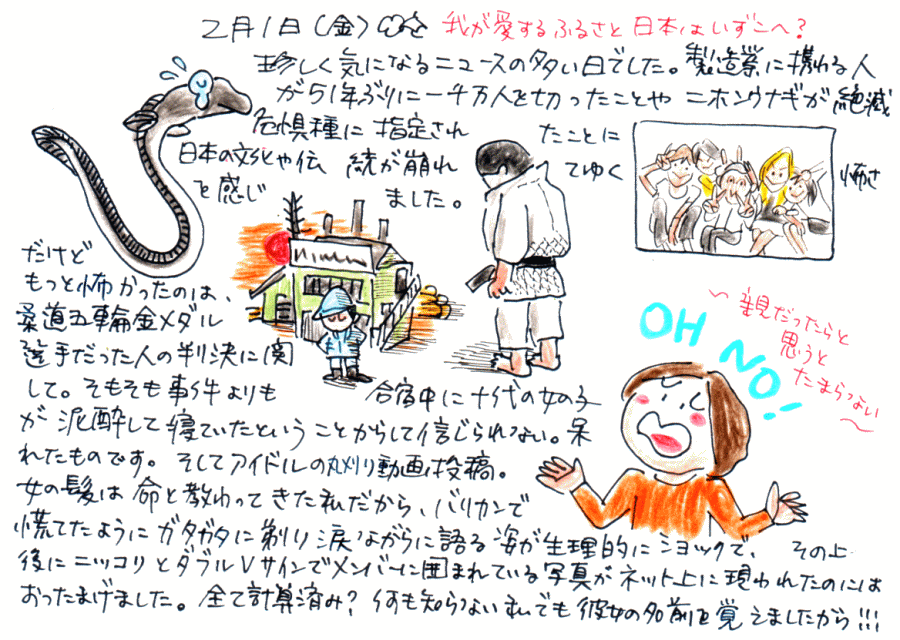 2月1日(金) 我が愛するふるさと日本はいずこへ?
珍しく気になるニュースの多い日でした。製造業に携わる人
が51年ぶりに一千万人を切ったことや ニホンウナギが絶滅
危惧種に指定され たことに
日本の文化や伝 統が崩れ てゆく 怖さ
を感じ ました。
だけど
もっと怖かったのは、
柔道五輪金メダル
選手だった人の判決に関
して。そもそも事件よりも 合宿中に十代の女の子
が泥酔して寝ていたということからして信じられない。呆
れたものです。そしてアイドルの丸刈り動画投稿。
女の髪は命と教わってきた私だから、バリカンで
慌てたようにガタガタに剃り涙ながらに語る姿が生理的にショックで、その上
後にニッコリとダブルVサインでメンバーに囲まれている写真がネット上に現われたのには
おったまげました。全て計算済み?何も知らない私でも彼女の名前を覚えましたから!!!
OH NO!
〜親だったらと
思うと
たまらない〜